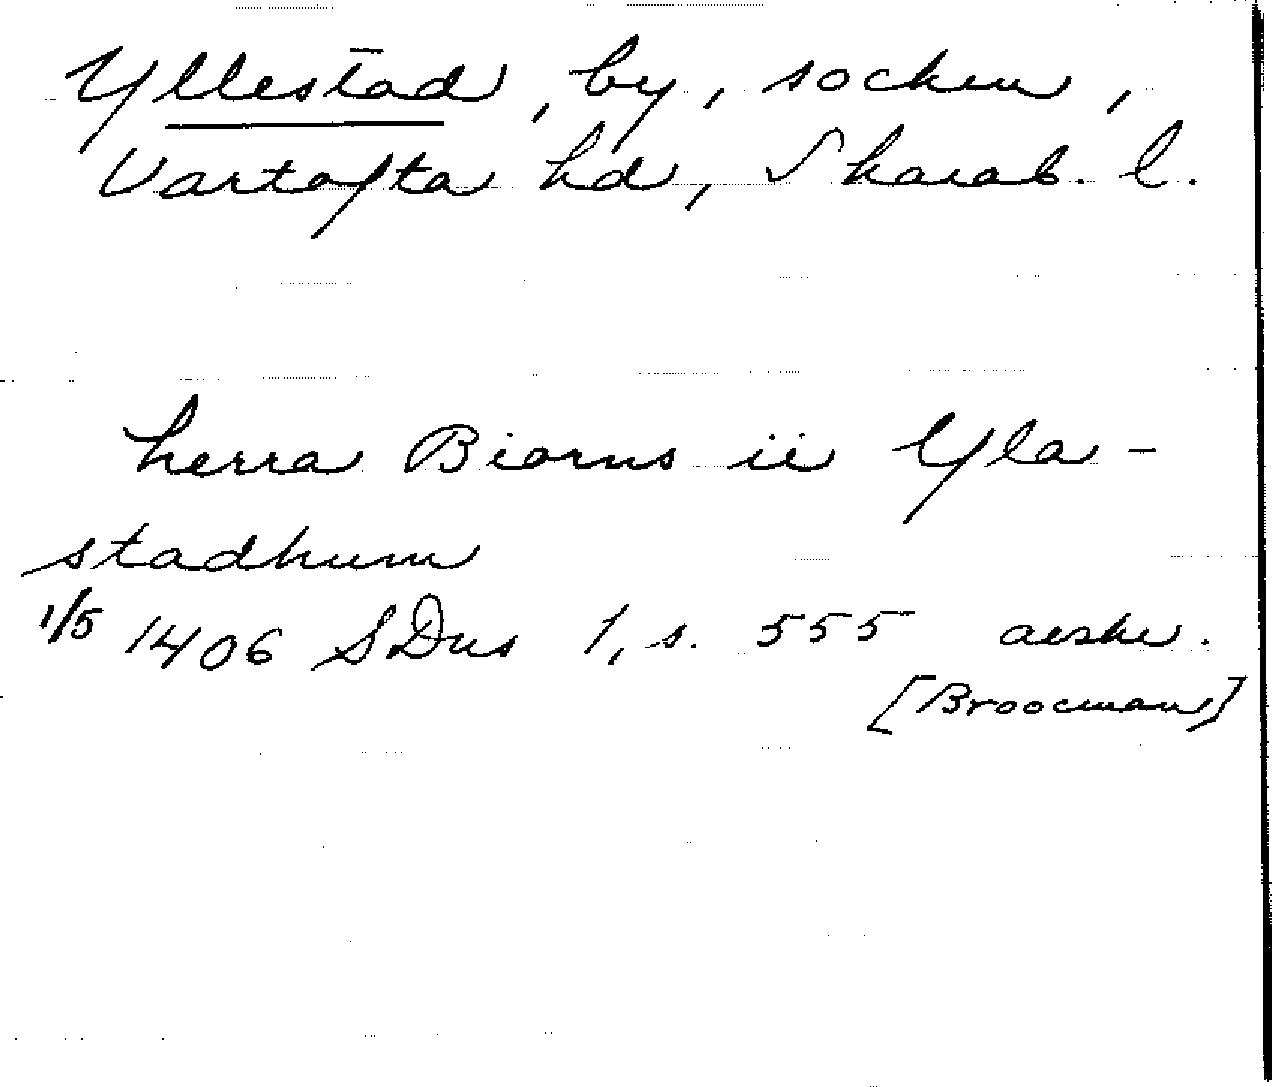 Yllestad, by, socken,
Vartofta hd, Skarab. l.
herra Biorns ii Yla-
stadhum
1/5 1406 SDns 1, s. 555 avskr.
[Broocman]